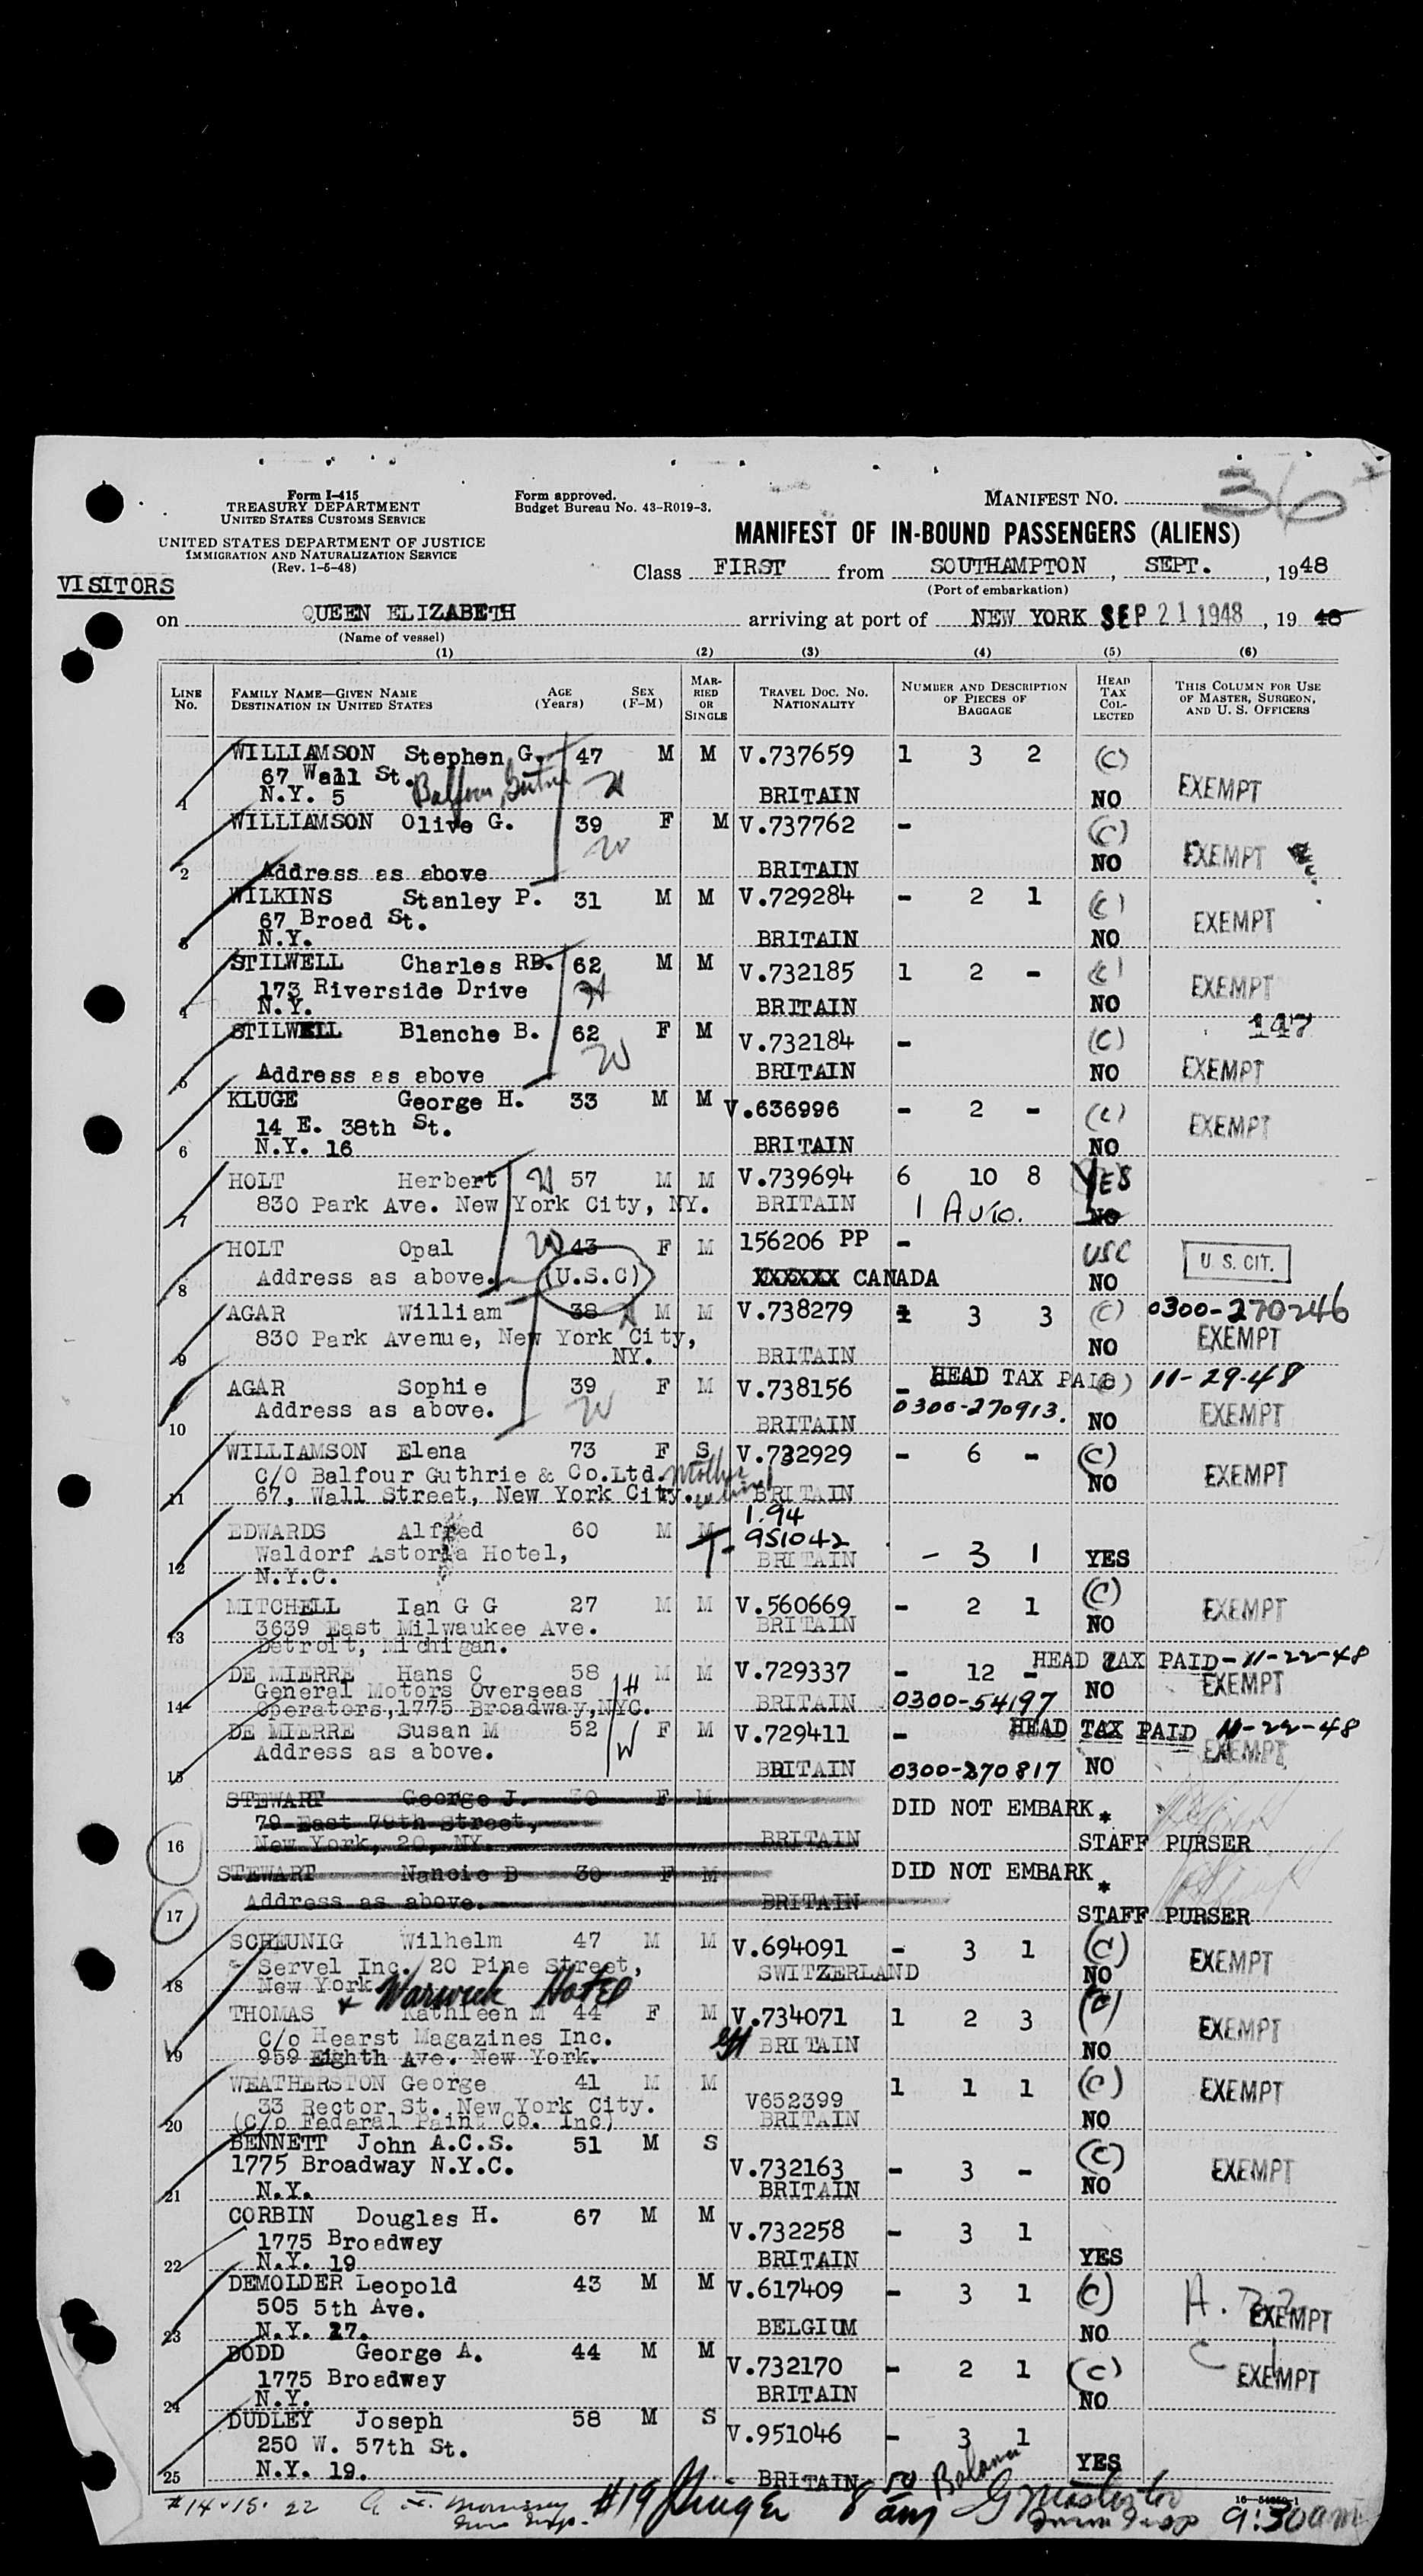 36
Form I-415
TREASURY DEPARTMENT
UNITED STATES CUSTOMS SERVICE
Form approved.
Budget Bureau No. 43-R019-3.
MANIFEST NO.
UNITED STATES DEPARTMENT OF JUSTICE
IMMIGRATION AND NATURALIZATION SERVICE
(Rev. 1-5-48)
MANIFEST OF IN-BOUND PASSENGERS (ALIENS)
VISITORS
Class FIRST from SOUTHAMPTON, SEPT., 1948
(Port of embarkation)
on QUEEN ELIZABETH arriving at port of NEW YORK SEP 21 1948, 19 48
(Name of vessel)
(1) (2) (3) (4) (5) (6)
LINE No. FAMILY NAME—GIVEN NAME DESTINATION IN UNITED STATES AGE (Years) SEX (F-M) MARRIED OR SINGLE TRAVEL DOC. NO. NATIONALITY NUMBER AND DESCRIPTION OF PIECES OF BAGGAGE HEAD TAX COLLECTED THIS COLUMN FOR USE OF MASTER, SURGEON, AND U. S. OFFICERS
WILLIAMSON Stephen G. 47 M M V.737659 1 3 2 (C)
67 Wall St. Balfour, Guthrie H EXEMPT
1 N.Y. 5 BRITAIN NO
WILLIAMSON Olive G. 39 F M V.737762 - (C)
W EXEMPT
2 Address as above BRITAIN NO
WILKINS Stanley P. 31 M M V.729284 - 2 1 (C)
67 Broad St. EXEMPT
3 N.Y. BRITAIN NO
STILWELL Charles RD. 62 M M V.732185 1 2 - (C)
173 Riverside Drive H EXEMPT
4 N.Y. BRITAIN NO
147
STILWELL Blanche B. 62 F M V.732184 - (C)
W
5 Address as above BRITAIN NO EXEMPT
KLUGE George H. 33 M M V.636996 - 2 - (C)
14 E. 38th St. EXEMPT
6 N.Y. 16 BRITAIN NO
HOLT Herbert H 57 M M V.739694 6 10 8 YES
7 830 Park Ave. New York City, NY. BRITAIN 1 AUTO. NO
HOLT Opal W 43 F M 156206 PP - USC U. S. CIT.
8 Address as above. (U.S.C) XXXXXX CANADA NO
AGAR William 38 H M M V.738279 1 3 3 (C) 0300-270246
830 Park Avenue, New York City, EXEMPT
9 NY. BRITAIN NO
AGAR Sophie 39 F M V.738156 - HEAD TAX PAID (C) 11-29-48
Address as above. W 0300-270913.
10 BRITAIN NO EXEMPT
WILLIAMSON Elena 73 F S V.732929 - 6 - (C)
C/O Balfour Guthrie & Co.Ltd. Mother NO EXEMPT
11 67, Wall Street, New York City. BRITAIN
1.94
EDWARDS Alfred 60 M M T-951042
Waldorf Astoria Hotel, BRITAIN - 3 1 YES
12 N.Y.C.
MITCHELL Ian G G 27 M M V.560669 - 2 1 (C) EXEMPT
3639 East Milwaukee Ave. BRITAIN NO
13 Detroit, Michigan.
HEAD TAX PAID-11-22-48
DE MIERRE Hans C 58 M M V.729337 - 12 -
General Motors Overseas H NO EXEMPT
14 Operators,1775 Broadway,NYC. BRITAIN 0300-54197
DE MIERRE Susan M 52 F M V.729411 - HEAD TAX PAID 11-22-48
Address as above. W EXEMPT
15 BRITAIN 0300-270817 NO
STEWART George J. 30 F M DID NOT EMBARK *
79 East 79th Street,
16 New York, 20, NY. BRITAIN STAFF PURSER
STEWART Nancie B 30 F M DID NOT EMBARK *
17 Address as above. BRITAIN STAFF PURSER
SCHEUNIG Wilhelm 47 M M V.694091 - 3 1 (C)
Servel Inc. 20 Pine Street, SWITZERLAND NO EXEMPT
18 New York
Warwick Hotel
THOMAS Kathleen M 44 F M V.734071 1 2 3 (C)
C/o Hearst Magazines Inc. BRITAIN EXEMPT
19 959 Eighth Ave. New York. NO
WEATHERSTON George 41 M M 1 1 1 (C) EXEMPT
33 Rector St. New York City. V652399
20 (C/o Federal Paint Co. Inc) BRITAIN NO
BENNETT John A.C.S. 51 M S (C)
1775 Broadway N.Y.C. V.732163 - 3 - EXEMPT
21 N.Y. BRITAIN NO
CORBIN Douglas H. 67 M M
1775 Broadway V.732258 - 3 1
22 N.Y. 19 BRITAIN YES
DEMOLDER Leopold 43 M M V.617409 - 3 1 (C)
505 5th Ave. EXEMPT
23 N.Y. 17. BELGIUM NO
DODD George A. 44 M M
1775 Broadway V.732170 - 2 1 (C) EXEMPT
24 N.Y. BRITAIN NO
DUDLEY Joseph 58 M S
250 W. 57th St. V.951046 - 3 1
25 N.Y. 19. BRITAIN YES
#14-15-22 #19 8 50 am 9:30am